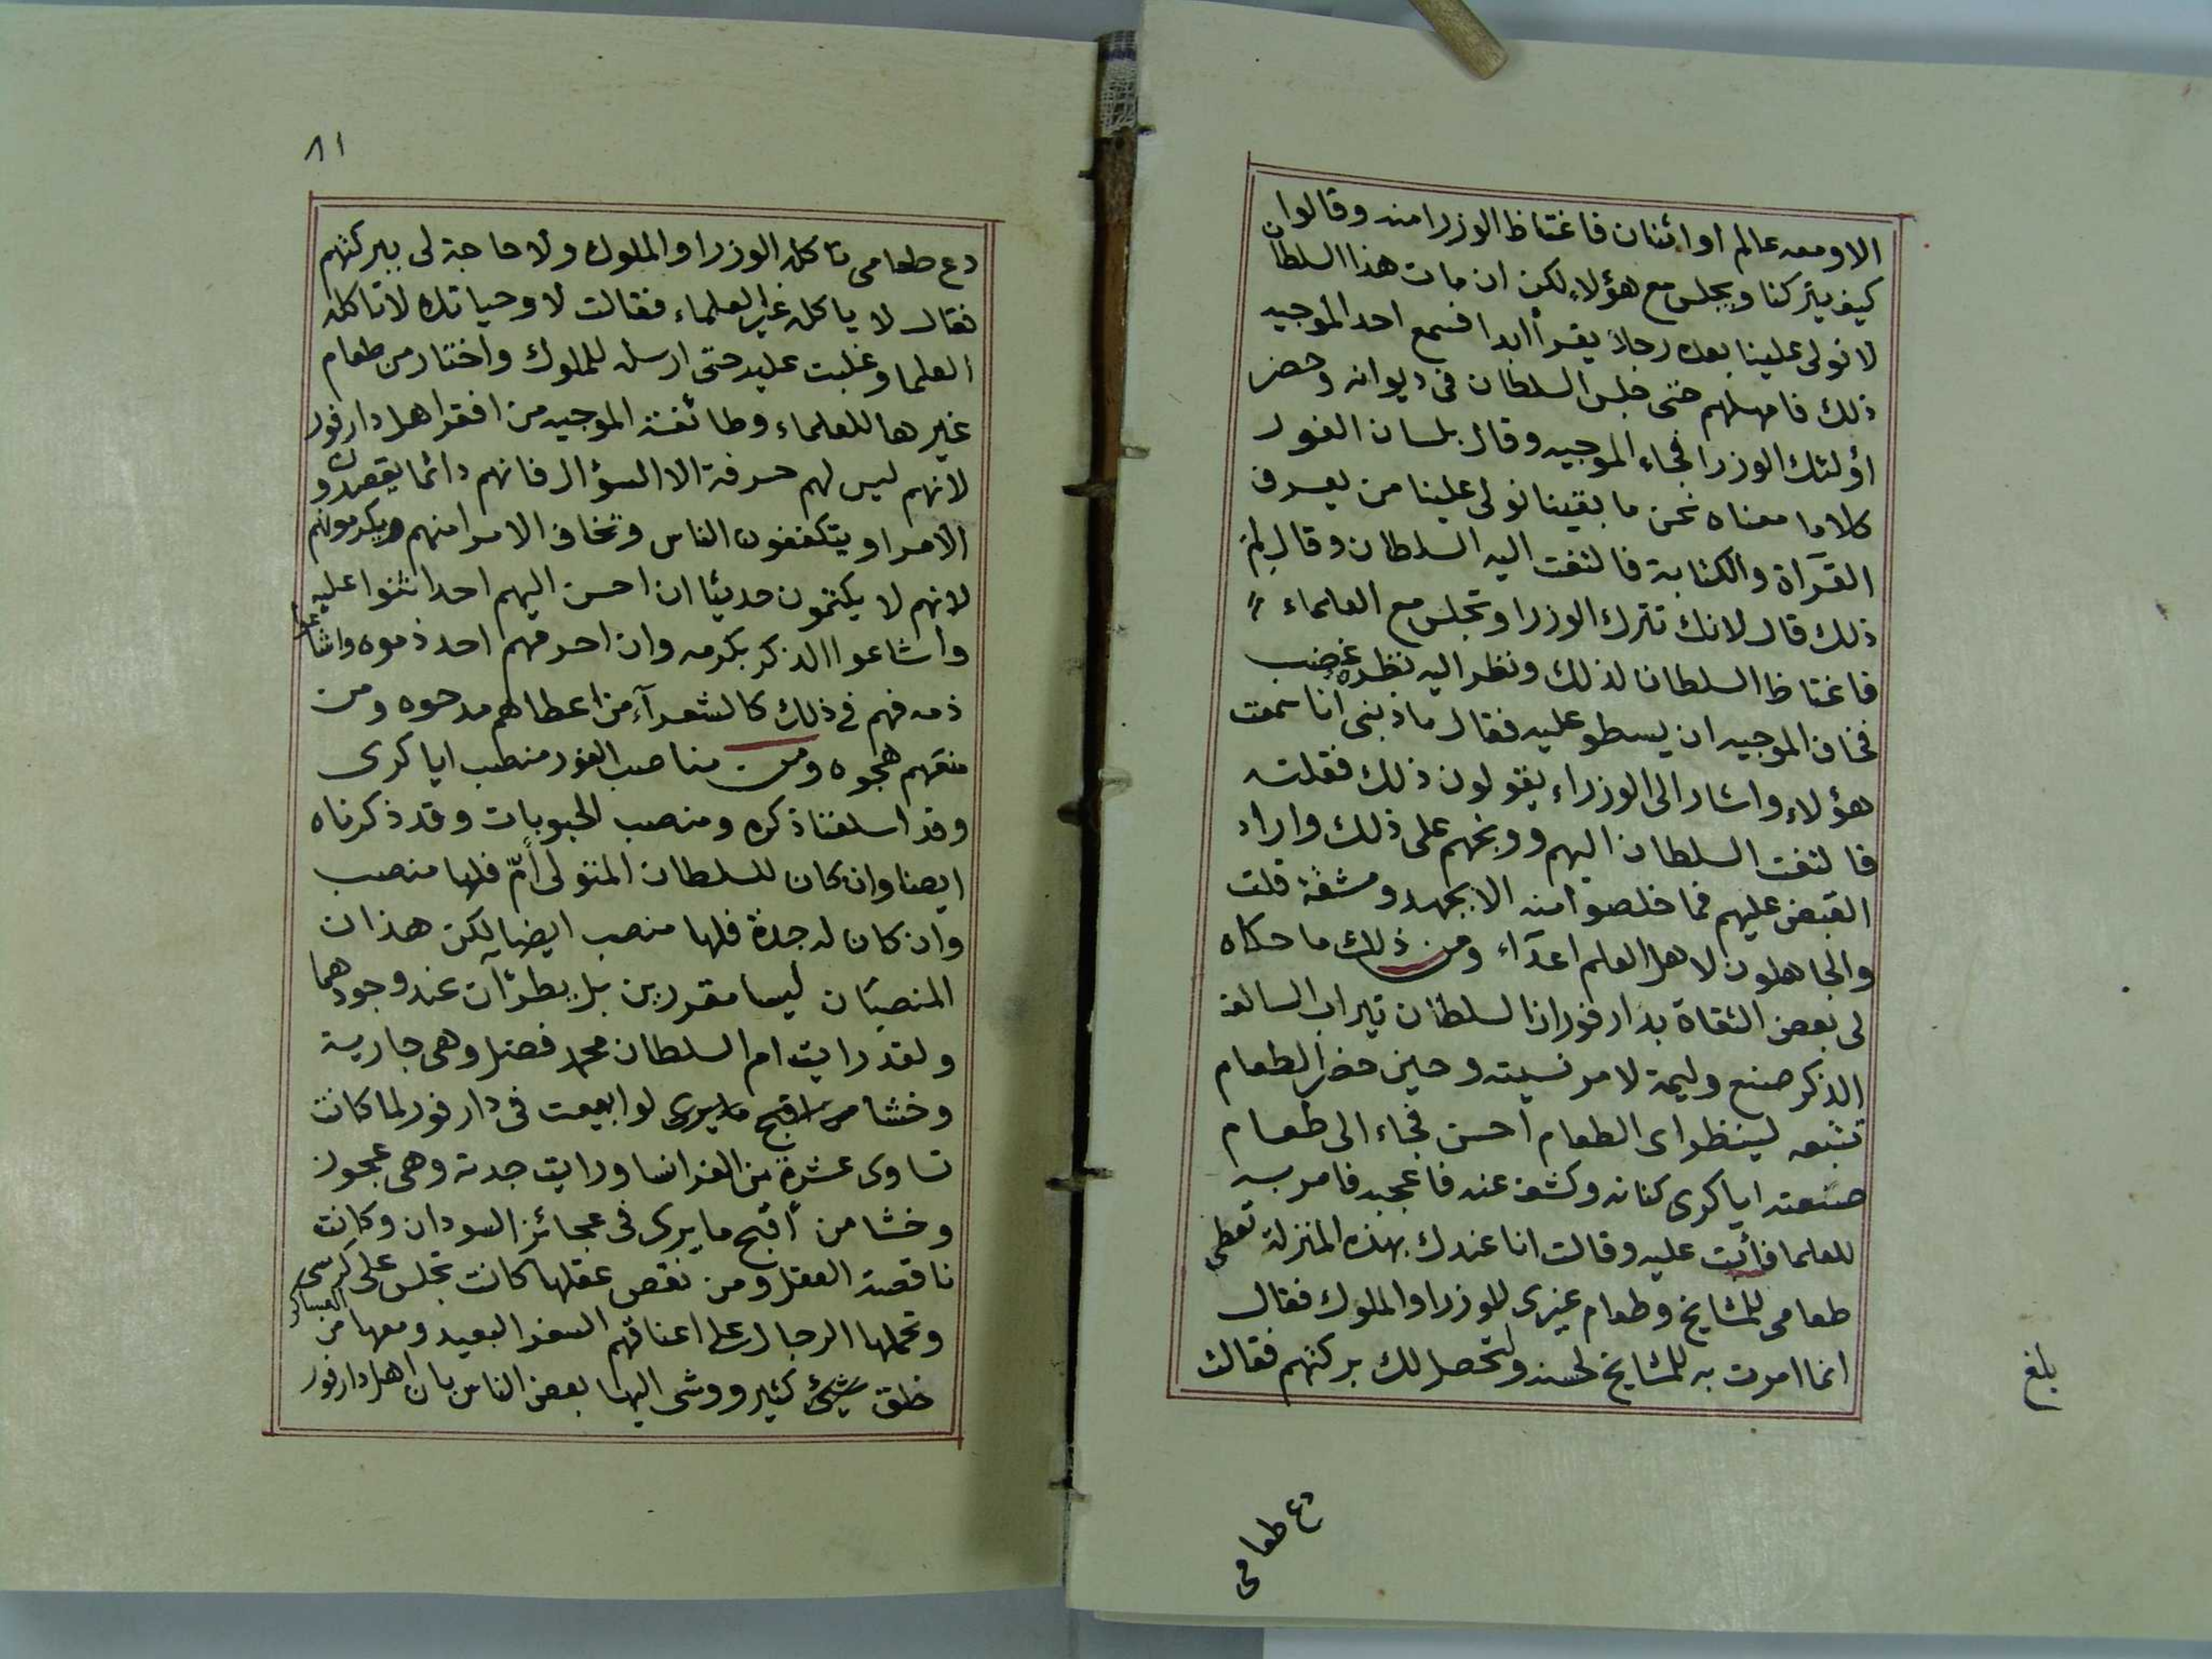 الا ومعه عالم او اثنان فاغتاظ الوزرا منه وقالوا
كيف يتركنا ويجلس مع هؤلاء لكن ان مات هذا السلطان
لا نولى علينا بعده رجلا يقرأ ابدا فسمع احد الموجيه
ذلك فامهلهم حتى جلس السلطان فى ديوانه وحضر
أولئك الوزرا فجاء الموجيه وقال بلسان الفور
كلاما معناه نحن ما بقينا نولى علينا من يعرف
القرآة والكتابة فالتفت اليه السلطان وقال لم
ذلك قال لانك تترك الوزرا وتجلس مع العلماء
فاغتاظ السلطان لذلك ونظر اليه نظرة غضب
فخاف الموجيه ان يسطو عليه فقال ما ذبنى انا سمعت
هؤلاء واشار الى الوزراء يقولون ذلك فقلته
فالتفت السلطان اليهم ووبخهم على ذلك واراد
القبض عليهم فما خلصوا منه الا بجهد ومشقة قلت
والجاهلون لاهل العلم اعدآء ومن ذلك ما حكاه
لى بعض الثقاة بدارفور ان السلطان تيراب السالف
الذكر صنع وليمة لامر نسيته وحين حضر الطعام
تتبعه لينظر اى الطعام احسن فجاء الى طعام
صنعته اياكرى كنانه وكشف عنه فاعجبه فامر به
للعلما فأبت عليه وقالت انا عندك بهذه المنزلة تعطى
طعامى للمشايخ وطعام غيرى للوزرا والملوك فقال
انما امرت به للمشايخ لحسنه ولتحصل لك بركتهم فقالت
دع طعامى
بلغ
٨١
دع طعامى تاكله الوزرا والملوك ولا حاجة لى ببركتهم
فقال لا ياكله غير العلماء فقالت لا وحياتك لا تاكله
العلما وغلبت عليه حتى ارسله للملوك واختار من طعام
غيرها للعلماء وطائفة الموجيه من افقر اهل دارفور
لانهم ليس لهم حرفة الا السؤال فانهم دائما يقصدون
الامرا ويتكففون الناس وتخاف الامرا منهم ويكرمونهم
لانهم لا يكتمون حديثا ان احسن اليهم احد اثنوا عليه
واشاعوا الذكر بكرمه وان احرمهم احد ذموه واشاعوا
ذمه فهم فى ذلك كالشعرآء من اعطاهم مدحوه ومن
منعهم هجوه ومن مناصب الفور منصب اياكرى
وقد اسلفنا ذكره ومنصب الحبوبات وقد ذكرناه
ايضا وان كان للسلطان المتولى أمّ فلها منصب
وان كان له جدة فلها منصب ايضا لكن هذان
المنصبان ليسا مقررين بل يطرئان عند وجودهما
ولقد رايت ام السلطان محمد فضل وهى جارية
وخشا من اقبح ما يرى لو ابيعت فى دارفور لما كانت
تساوى عشرة من الفرانسا ورايت جدته وهى عجوز
وخشا من أقبح ما يرى فى عجائز السودان وكانت
ناقصة العقل ومن نقص عقلها كانت تجلس على كرسى
وتحملها الرجال على اعناقهم السفر البعيد ومعها من العساكر
خلق شيئ كثير ووشى اليها بعض الناس بان اهل دارفور